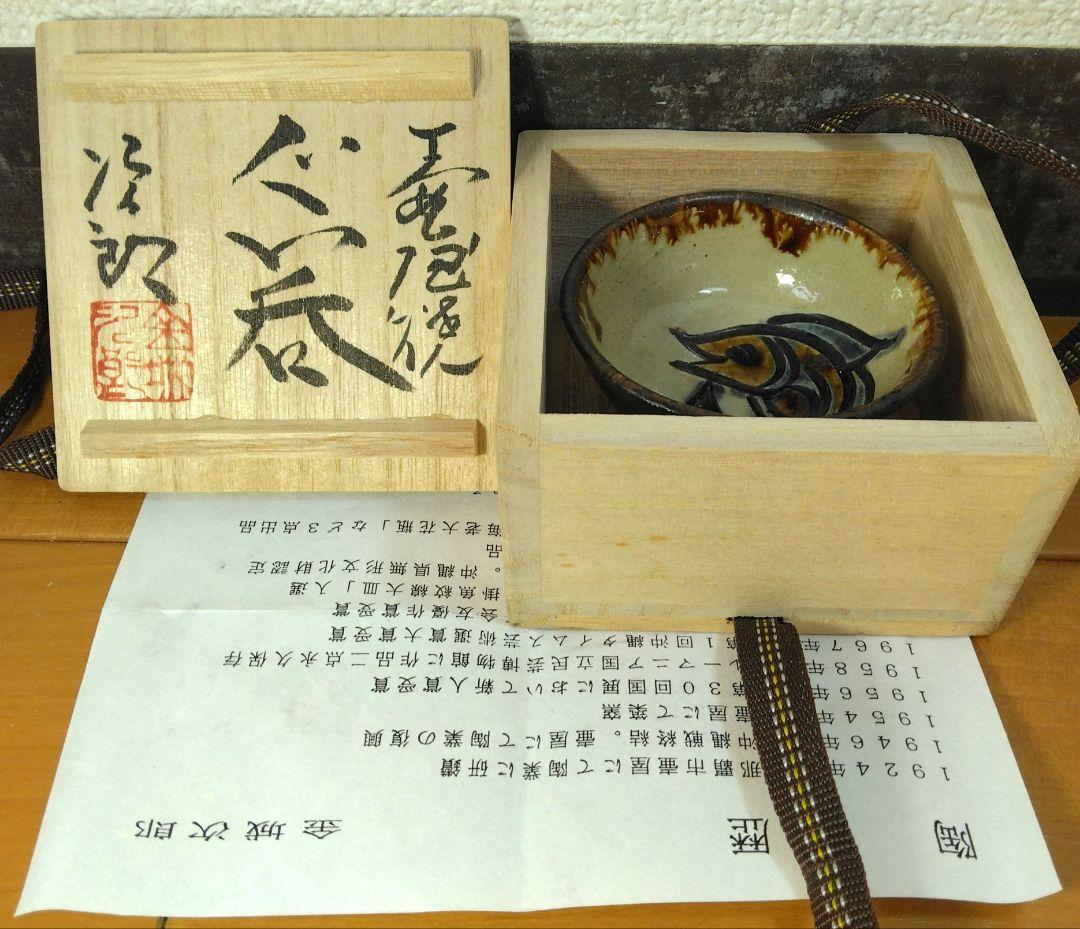 壷屋焼
ぐい呑
次郎
陶歴
金城次郎
1924年 那覇市壷屋にて陶業に研鑽
1946年 沖縄戦終結。壷屋にて陶業の復興
1954年 壷屋にて築窯
1956年 第30回国展において新人賞受賞
1958年 ルーマニア国立民芸博物館に作品二点永久保存
1967年 第1回沖縄タイムス芸術選賞大賞受賞
会友優作賞受賞
掛魚紋線大皿」入選
。沖縄県無形文化財認定
品
海老大花瓶」など3点出品